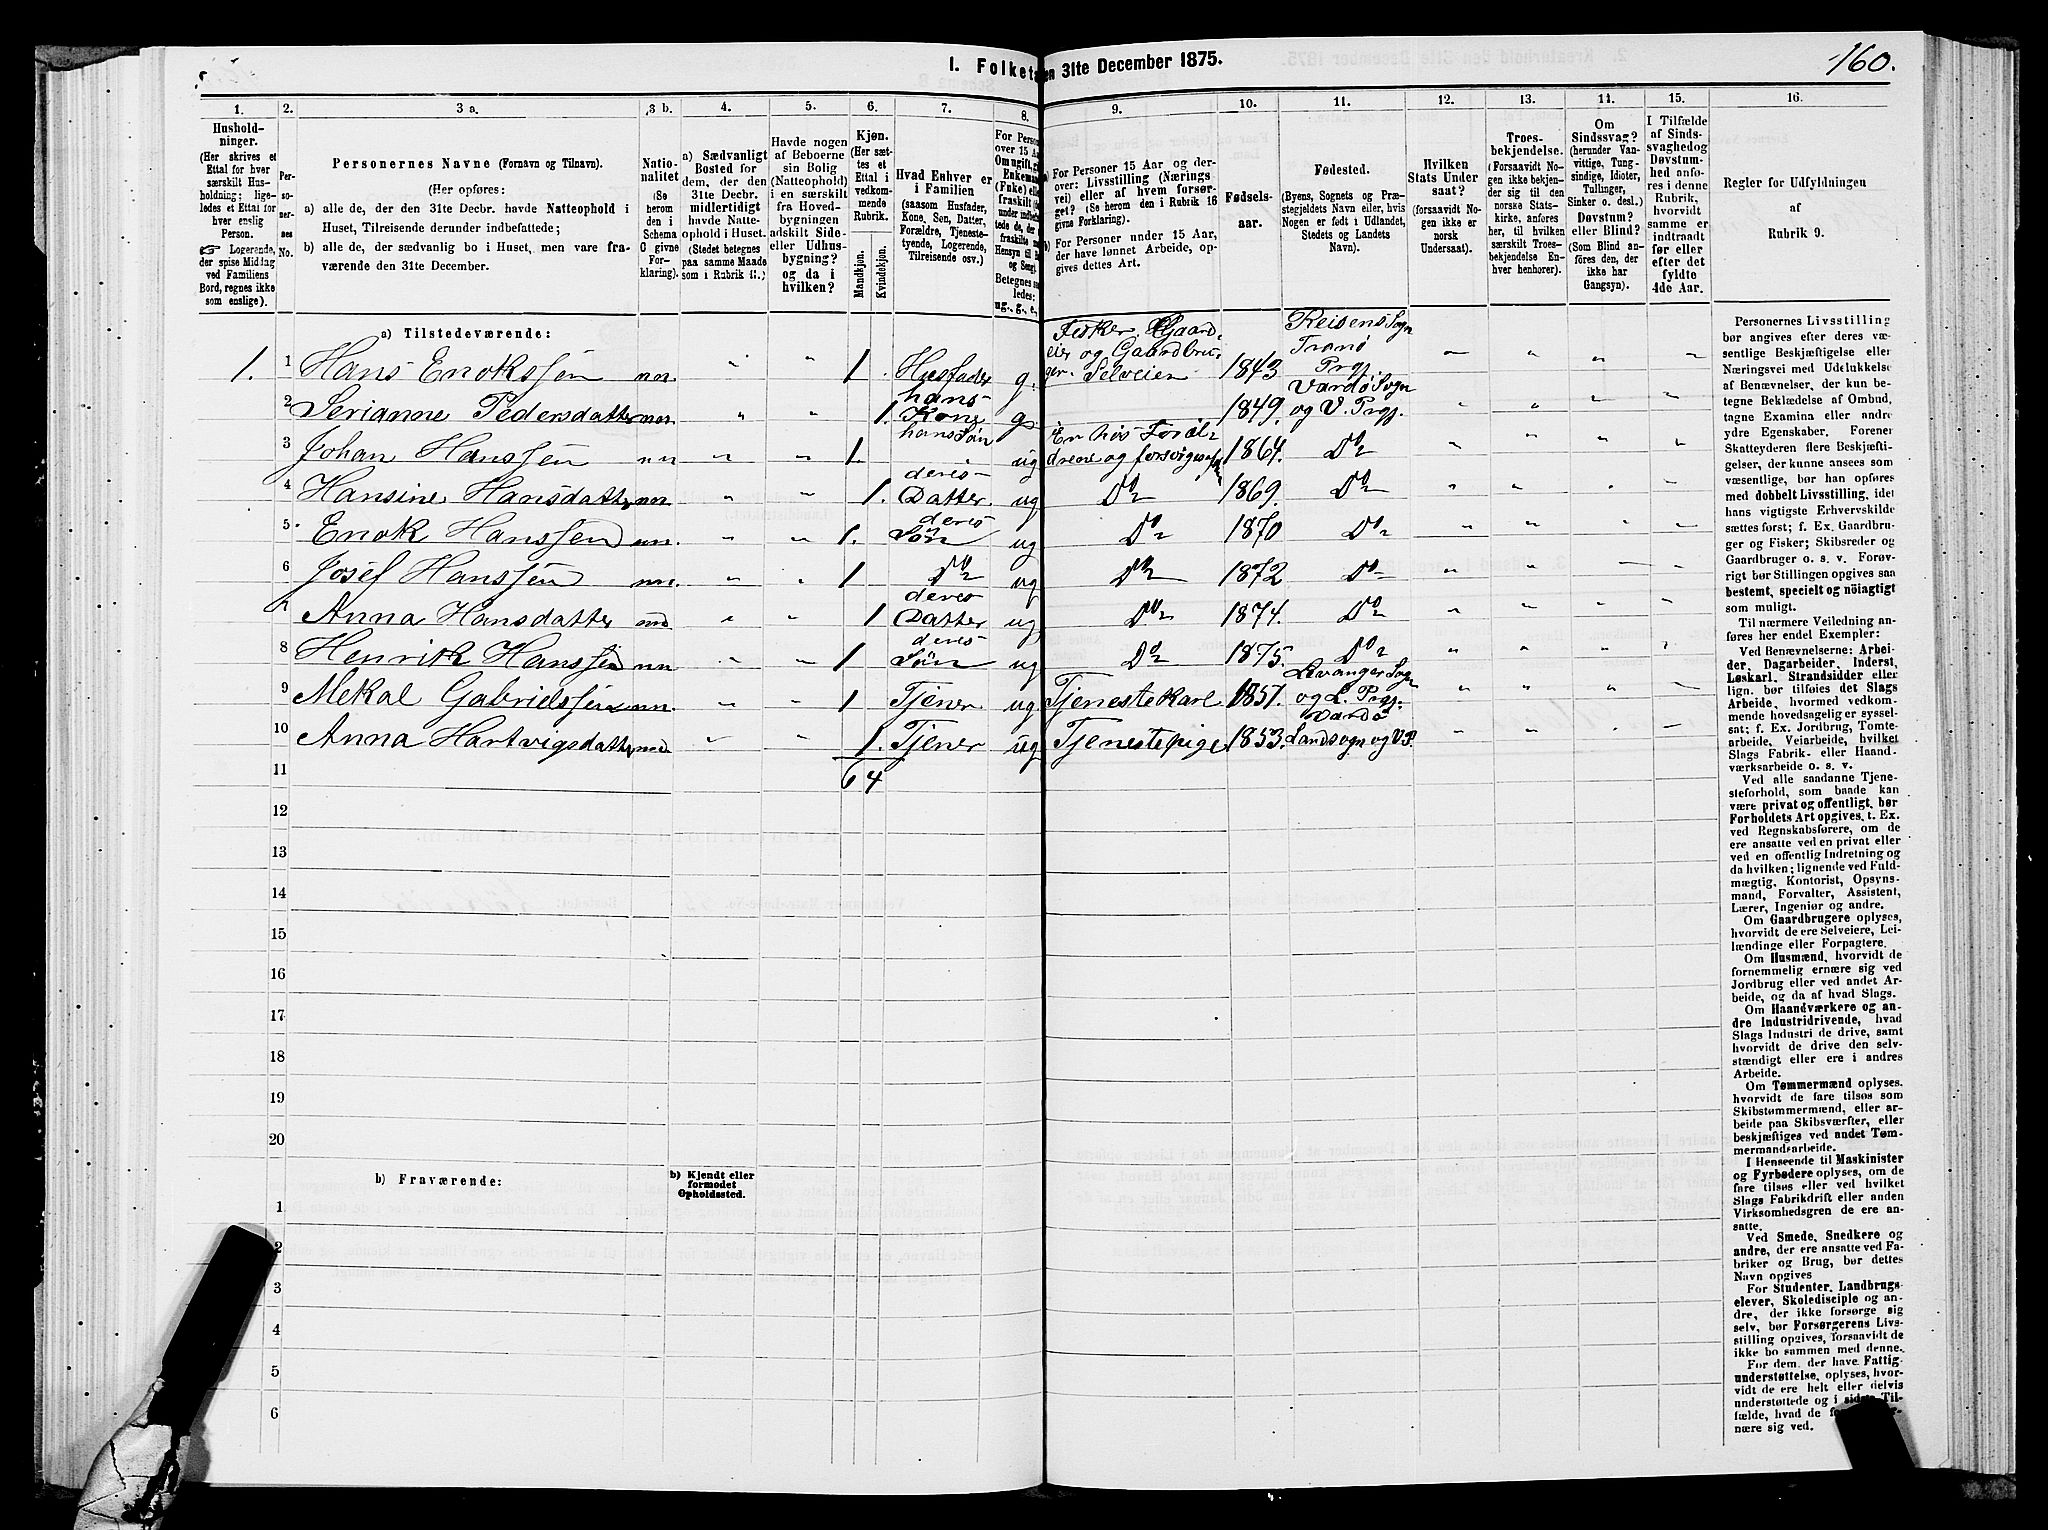 I. Folketæ
en 31te December 1875.
160.
1.
2.
3 a.
3 b.
4.
5.
6.
7.
8.
9.
10.
11.
12.
13.
14.
15.
16.
Husholdninger.
(Her skrives et
Ettal for hver
særskilt Husholdning; ligeledes et Ettal for
hver enslig
Person.
☞ Logerende,
der spise Middag
ved Familiens
Bord, regnes ikke
som enslige).
Personernes No.
Personernes Navne (Fornavn og Tilnavn).
(Her opføres:
a) alle de, der den 31te Decbr. havde Natteophold i
Huset, Tilreisende derunder indbefattede;
b) alle de, der sædvanlig bo i Huset, men vare fraværende den 31te December.
Nationalitet
(Se
herom
den i
Schema
C givne
Forklaring).
a) Sædvanligt
Bosted for
dem, der den
31te Decbr.
midlertidigt
havde Natteophold i Huset.
(Stedet betegnes
paa samme Maade
som i Rubrik 11.)
Havde nogen
af Beboerne
sin Bolig
(Natteophold)
i en særskilt
fra Hovedbygningen
adskilt Side-
eller Udhusbygning?
og da i
hvilken?
Kjøn.
(Her sættes et
Ettal i
vedkommende
Rubrik.
Mandkjøn.
Kvindekjøn.
Hvad Enhver er
i Familien
(saasom Husfader,
Kone, Søn, Datter,
Forældre, Tjenestetyende, Logerende,
Tilreisende osv.)
a) For Personer 15 Aar og derover: Livsstilling (Næringsvei) eller af hvem forsørget? (Se herom den i Rubrik 16
givne Forklaring).
b) For Personer under 15 Aar,
der have lønnet Arbeide, opgives dettes Art.
Fødselsaar.
Fødested.
(Byens, Sognets og Præstegjeldets Navn eller, hvis
Nogen er født i Udlandet,
Stedets og Landets
Navn).
Hvilken
Stats Undersaat?
(forsaavidt Nogen ikke er
norsk
Undersaat).
Troesbekjendelse.
(Forsaavidt Nogen ikke bekjender sig til den
norske Statskirke, anføres
her, til hvilken
særskilt Troesbekjendelse Enhver henhører).
Om
Sindssvag?
(herunder Vanvittige, Tungsindige, Idioter,
Tullinger,
Sinker o. desl.)
Døvstum?
eller Blind?
(Som Blind anføres den, der
ikke har
Gangsyn).
I Tilfælde
af Sindssvaghed og
Døvstumhed anføres i denne
Rubrik,
hvorvidt
samme er
indtraadt
før eller
efter det
fyldte
4de Aar.
Regler for Udfyldningen
af
Rubrik 9.
a) Tilstedeværende:
1. 1 Hans Enoksen nor. " " 1. Husfader g. Fisker, Gaardeier og Gaardbruger. Selveier 1843 Reisens Sogn Tranø Prgj. " " " "
2 Serianne Pedersdatter nor. " " 1. hans Kone g. 1849. Vardø Sogn og V. Prgj. " " " "
3 Johan Hanssen " " 1. hans Søn ug 1864. Do " " " "
4 Hansine Hansdatter nor " " 1. deres Datter ug Do 1869. Do " " " "
5 Enok Hanssen " " 1. deres Søn ug Do 1870 Do " " " "
6 Josef Hanssen " " 1 Do ug Do 1872 Do " " " "
7 Anna Hansdatter " " 1 deres Datter ug Do 1874. Do " " " "
8 Henrik Hanssen " " 1 deres Søn ug Do 1875. Do " " " "
9 Mekal Gabrielssen " " 1 Tjener ug. Tjenestekarl 1851. Levanger Sogn og L. Prgj. " " " "
10 Anna Hartvigsdatter " " 1. Tjener ug Tjenestepige 1853. Vardø Landsogn og V.P. " " " "
11 6 4
12
13
14
15
16
17
18
19
20
b) Fraværende:
b) Kjendt eller
formodet
Opholdssted.
1
2
3
4
5
6
Personernes Livsstilling
bør angives efter deres væsentlige Beskjæftigelse eller
Næringsvei med Udelukkelse
af Benævnelser, der kun betegne Beklædelse af Ombud,
tagne Examina eller andre
ydre Egenskaber. Forener
Skatteyderen flere Beskjæftigelser, der kunne ansees som
væsentlige, bør han opføres
med dobbelt Livsstilling, idet
hans vigtigste Erhvervskilde
sættes først; f. Ex. Gaardbruger og Fisker; Skibsreder og
Gaardbruger o. s. v. Forøvrigt bør Stillingen opgives saa
bestemt, specielt og nöiagtigt
som muligt.
Til nærmere Veiledning anføres her endel Exempler:
Ved Benævnelserne: Arbeider, Dagarbeider, Inderst,
Løskarl, Strandsidder eller
lign. bør tilføies det Slags
Arbeide, hvormed vedkommende hovedsagelig er sysselsat; f. Ex. Jordbrug, Tomtearbeide, Veiarbeide, hvilket
Slags Fabrik- eller Haandværksarbeide o. s. v.
Ved alle saadanne Tjenesteforhold, som baade kan
være privat og offentligt, bør
Forholdets Art opgives, t. Ex.
ved Regnskabsførere, om de
ere ansatte ved en privat eller
ved en offentlig Indretning og
da hvilken; lignende ved Fuldmægtig, Kontorist, Opsynsmand, Forvalter, Assistent,
Lærer, Ingeniør og andre.
Om Gaardbrugere oplyses,
hvorvidt de ere Selveiere, Leilændinge eller Forpagtere.
Om Husmænd, hvorvidt de
fornemmelig ernære sig ved
Jordbrug eller ved andet Arbeide, og da af hvad Slags.
Om Haandværkere og andre Industridrivende, hvad
Slags Industri de drive, samt
hvorvidt de drive den selvstændigt eller ere i andres
Arbeide.
Om Tømmermænd oplyses,
hvorvidt de fare tilsøs som
Skibstømmermænd, eller arbeide paa Skibsværfter, eller
beskjæftiges ved andet Tømmermandsarbeide.
I Henseende til Maskinister
og Fyrbødere oplyses, om de
fare tilsøs eller ved hvilket
Slags Fabrikdrift eller anden
Virksomhedsgren de ere ansatte.
Ved Smede, Snedkere og
andre, der ere ansatte ved Fabriker og Brug, bør dettes
Navn opgives
For Studenter, Landbrugselever, Skoledisciple og andre, der ikke forsørge sig
selv, bør Forsørgerens Livsstilling opgives, forsaavidt de
ikke bo sammen med denne.
For dem, der have Fattigunderstøttelse, oplyses, hvorvidt de ere helt eller delvis
understøttede og i
fælde, hvad de
nære sig ved.